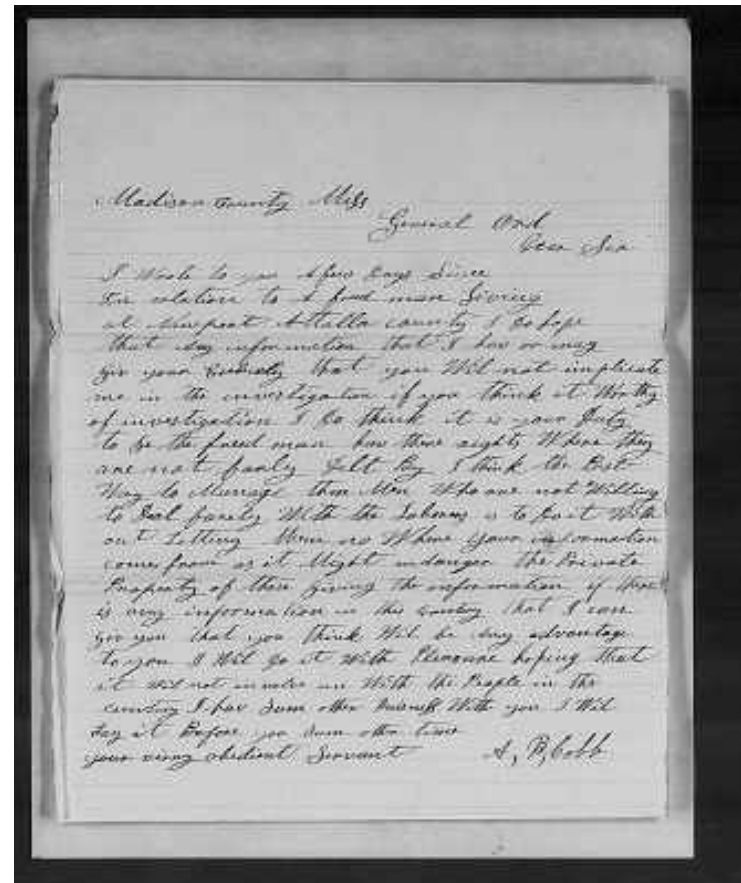 Madison County Miss
General Ord
Dear Sir
I Wrote to you A few Days Since
In relation to A freed man Living
at Newport Attalla county I Do hope
that Any information that I hav or may
giv your that you Wil not implicate
me in the investigation if you think it Worthy
of investigation I Do think it is your Duty
to the freed man hav there rights Where they
are not farely Delt By I think the Best
Way to Manage them Men Who are not Willing
to Deal farely With the Laborers is to Do it With
out Letting Them no Where your information
comes from as it Might indanger the Private
Property of those giving the information if there
is any information in this country that I can
giv you that you think Wil be Any advantage
to you I Wil Do it With Pleasure hoping that
it Wil not involve me With the People in the
country I hav Sum other Business With you I Wil
Lay it Before you Sum other time
your obedient Servant A, B, Cobb